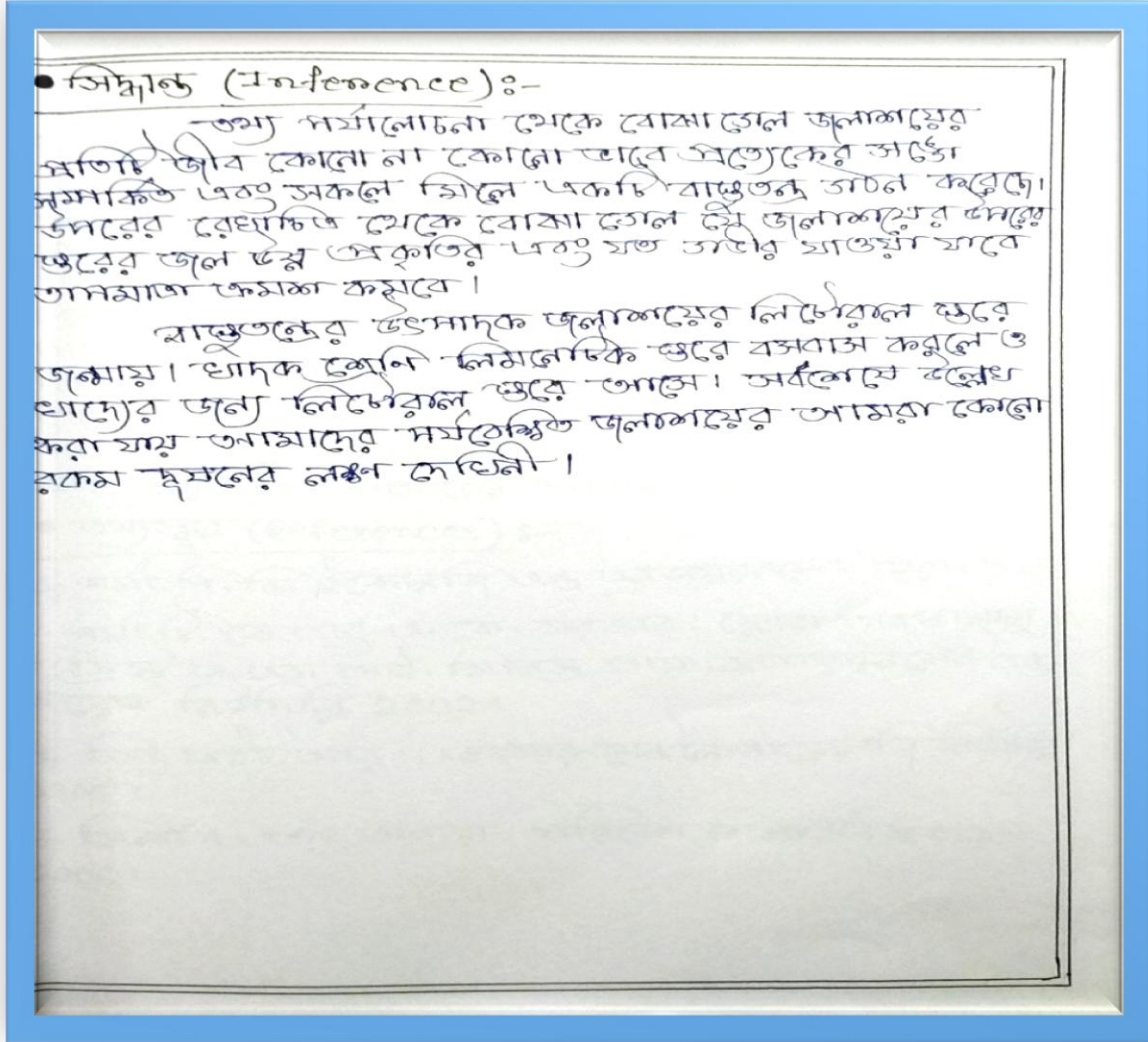 • সিদ্ধান্ত (Inference):-
তথ্য পর্যালোচনা থেকে বোঝা গেল জলাশয়ের
প্রতিটি জীব কোনো না কোনো ভাবে প্রত্যেকের সঙ্গে
সম্পর্কিত এবং সকলে মিলে একটি বাস্তুতন্ত্র গঠন করেছে।
উপরের রেখাচিত্র থেকে বোঝা গেল যে জলাশয়ের উপরের
স্তরের জল উষ্ণ প্রকৃতির এবং যত গভীর যাওয়া যাবে
তাপমাত্রা ক্রমশ কমবে।
বাস্তুতন্ত্রের উৎপাদক জলাশয়ের লিটোরাল স্তরে
জন্মায়। খাদক শ্রেনি লিমনেটিক স্তরে বসবাস করলে ও
খাদ্যের জন্য লিটোরাল স্তরে আসে। সর্বশেষে উল্লেখ
করা যায় আমাদের পর্যবেক্ষিত জলাশয়ের আমরা কোনো
রকম দূষনের লক্ষণ দেখিনী।